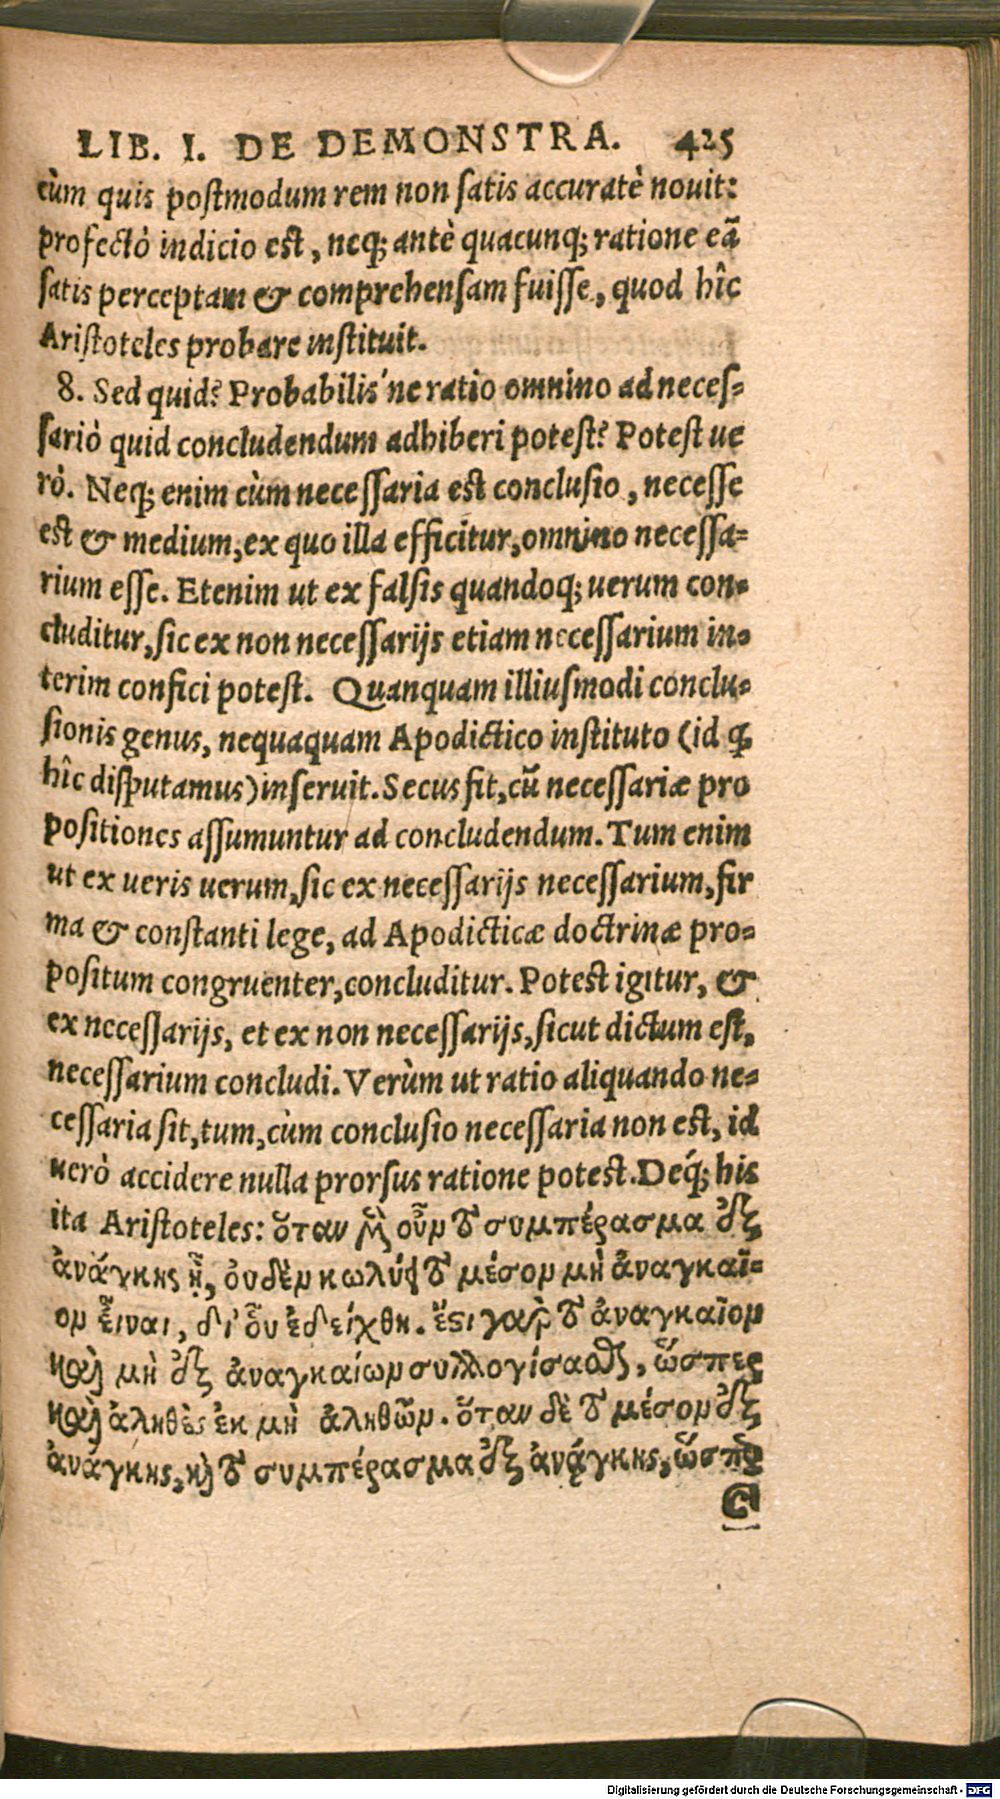 LIB. I. DE DEMONSTRA. 425
cùm quis postmodum rem non satis accuratè nouit:
profectò indicio est, neq; antè quacunq; ratione eã
satis perceptam & comprehensam fuisse, quod hîc
Aristoteles probare instituit.
8. Sed quid? Probabilis'ne ratio omnino ad neces-
sariò quid concludendum adhiberi potest? Potest ue
rò. Neq; enim cùm necessaria est conclusio, necesse
est & medium, ex quo illa efficitur, omnino necessa-
rium esse. Etenim ut ex falsis quandoq; uerum con-
cluditur, sic ex non necessarijs etiam necessarium in-
terim confici potest. Quanquam illiusmodi conclu-
sionis genus, nequaquam Apodictico instituto (id q̃
hîc disputamus) inseruit. Secus fit, cũ necessariæ pro
positiones assumuntur ad concludendum. Tum enim
ut ex ueris uerum, sic ex necessarijs necessarium, fir
ma & constanti lege, ad Apodicticæ doctrinæ pro-
positum congruenter, concluditur. Potest igitur, &
ex necessarijs, et ex non necessarijs, sicut dictum est,
necessarium concludi. Verùm ut ratio aliquando ne-
cessaria sit, tum, cùm conclusio necessaria non est, id
uerò accidere nulla prorsus ratione potest. Deq́; his
ita Aristoteles: ὅταν μὲν οὖν τὸ συμπέρασμα ἐξ
ἀνάγκης ᾖ, οὐδὲν κωλύει τὸ μέσον μὴ ἀναγκαῖ-
ον εἶναι, δι' οὗ ἐδείχθη. ἔστι γὰρ τὸ ἀναγκαῖον
καὶ μὴ ἐξ ἀναγκαίων συλλογίσασθαι, ὥσπερ
καὶ ἀληθὲς ἐκ μὴ ἀληθῶν. ὅταν δὲ τὸ μέσον ἐξ
ἀνάγκης, καὶ τὸ συμπέρασμα ἐξ ἀνάγκης, ὥσπερ
C
Digitalisierung gefördert durch die Deutsche Forschungsgemeinschaft - DFG